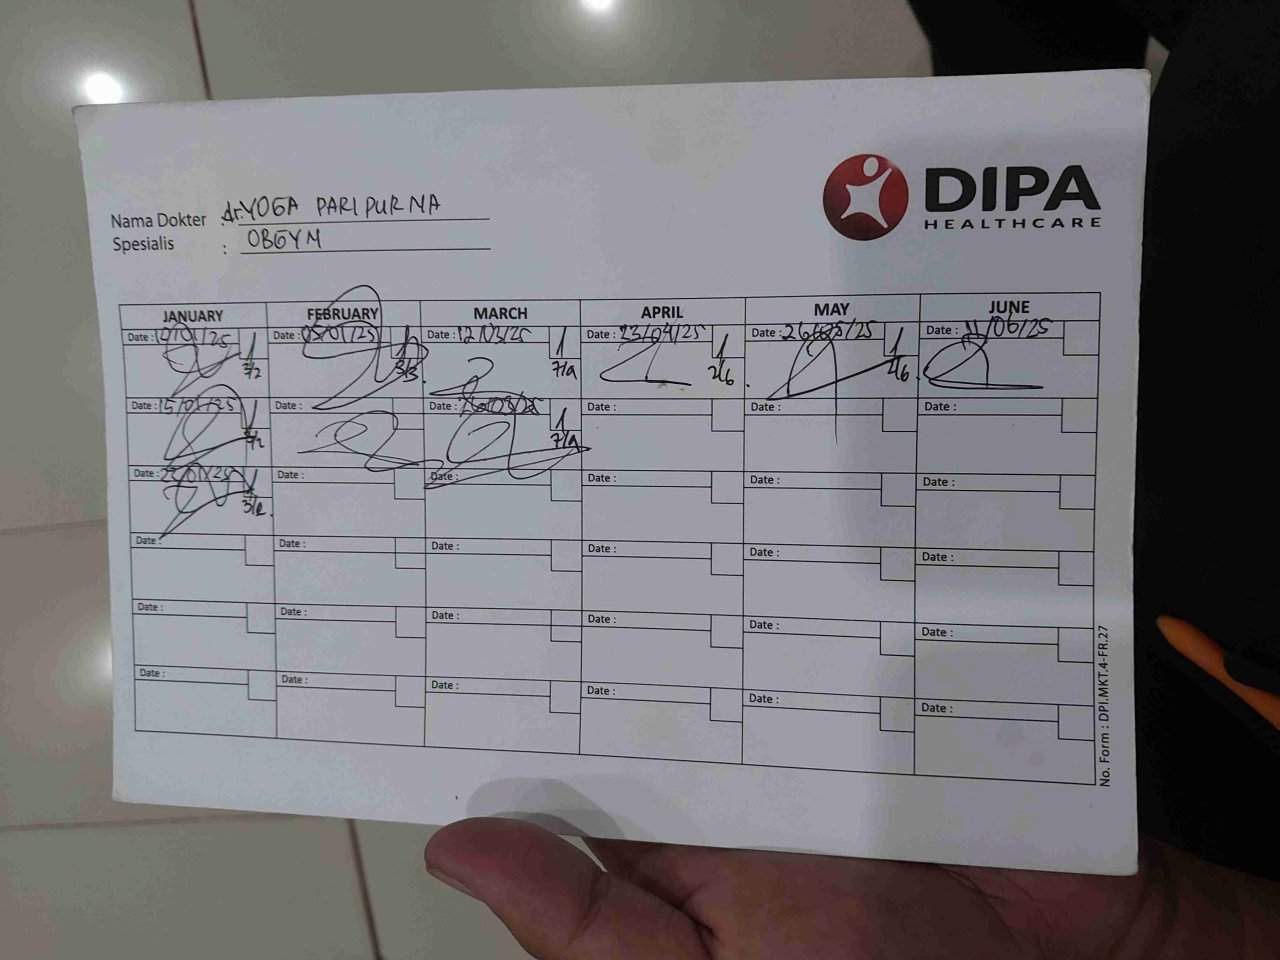 DIPA
HEALTHCARE
Nama Dokter : dr. YOGA PARIPURNA
Spesialis : OBGYN
JANUARY FEBRUARY MARCH APRIL MAY JUNE
Date : /01/25 1 Date : 05/01/25 1 Date : 12/03/25 1 Date : 23/04/25 1 Date : 26/05/25 1 Date : 11/06/25
3/2 3/3 7/9 2/6 2/6
Date : 15/01/25 1 Date : Date : 26/03/25 1 Date : Date : Date :
7/9
Date : 22/01/25 1 Date : Date : Date : Date : Date :
Date : Date : Date : Date : Date : Date :
Date : Date : Date : Date : Date : Date :
Date : Date : Date : Date : Date : Date :
No. Form : DPI.MKT.4-FR.27